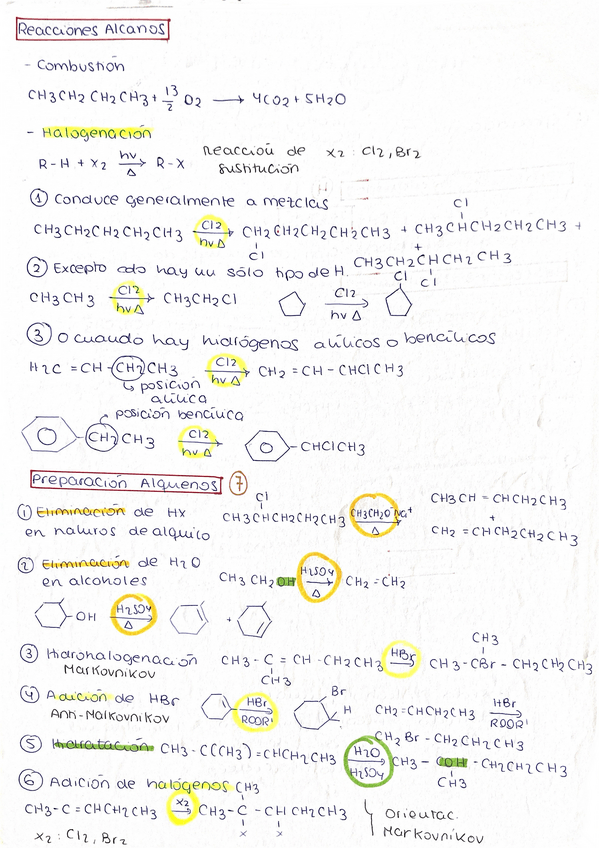 Reacciones Alcanos
- Combustión
CH3CH2CH2CH3 + 13/2 O2 → 4CO2 + 5H2O
- Halogenación
R-H + X2 hν/Δ → R-X Reacción de sustitución X2: Cl2, Br2
① Conduce generalmente a mezclas
CH3CH2CH2CH2CH3 Cl2/hνΔ → CH2CH2CH2CH2CH3 + CH3CHCH2CH2CH3 +
Cl Cl
+
② Excepto cdo hay un sólo tipo de H. CH3CH2CHCH2CH3
Cl
CH3CH3 Cl2/hνΔ → CH3CH2Cl Cl2/hνΔ → Cl
③ O cuando hay hidrógenos alílicos o bencílicos
H2C=CH-CH2CH3 Cl2/hνΔ → CH2=CH-CHClCH3
↳ posición alílica
posición bencílica
CH2CH3 Cl2/hνΔ → -CHClCH3
Preparación Alquenos ⑦
① Eliminación de HX
en naturos de alquilo
Cl
CH3CHCH2CH2CH3 CH3CH2O⁻Na⁺/Δ → CH3CH=CHCH2CH3
+
CH2=CHCH2CH2CH3
② Eliminación de H2O
en alcoholes
CH3CH2OH H2SO4/Δ → CH2=CH2
-OH H2SO4/Δ → +
③ Hidrohalogenación
Markovnikov
CH3-C=CH-CH2CH3 HBr → CH3-CBr-CH2CH2CH3
CH3 CH3
④ Adición de HBr
Anti-Markovnikov
HBr/ROOR' → Br H
CH2=CHCH2CH3 HBr/ROOR' →
CH2Br-CH2CH2CH3
⑤ Hidratación CH3-C(CH3)=CHCH2CH3 H2O/H2SO4 → CH3-COH-CH2CH2CH3
CH3
⑥ Adición de halógenos CH3
CH3-C=CHCH2CH3 X2 → CH3-C-CHCH2CH3
x x
X2: Cl2, Br2
Orientac. Markovnikov